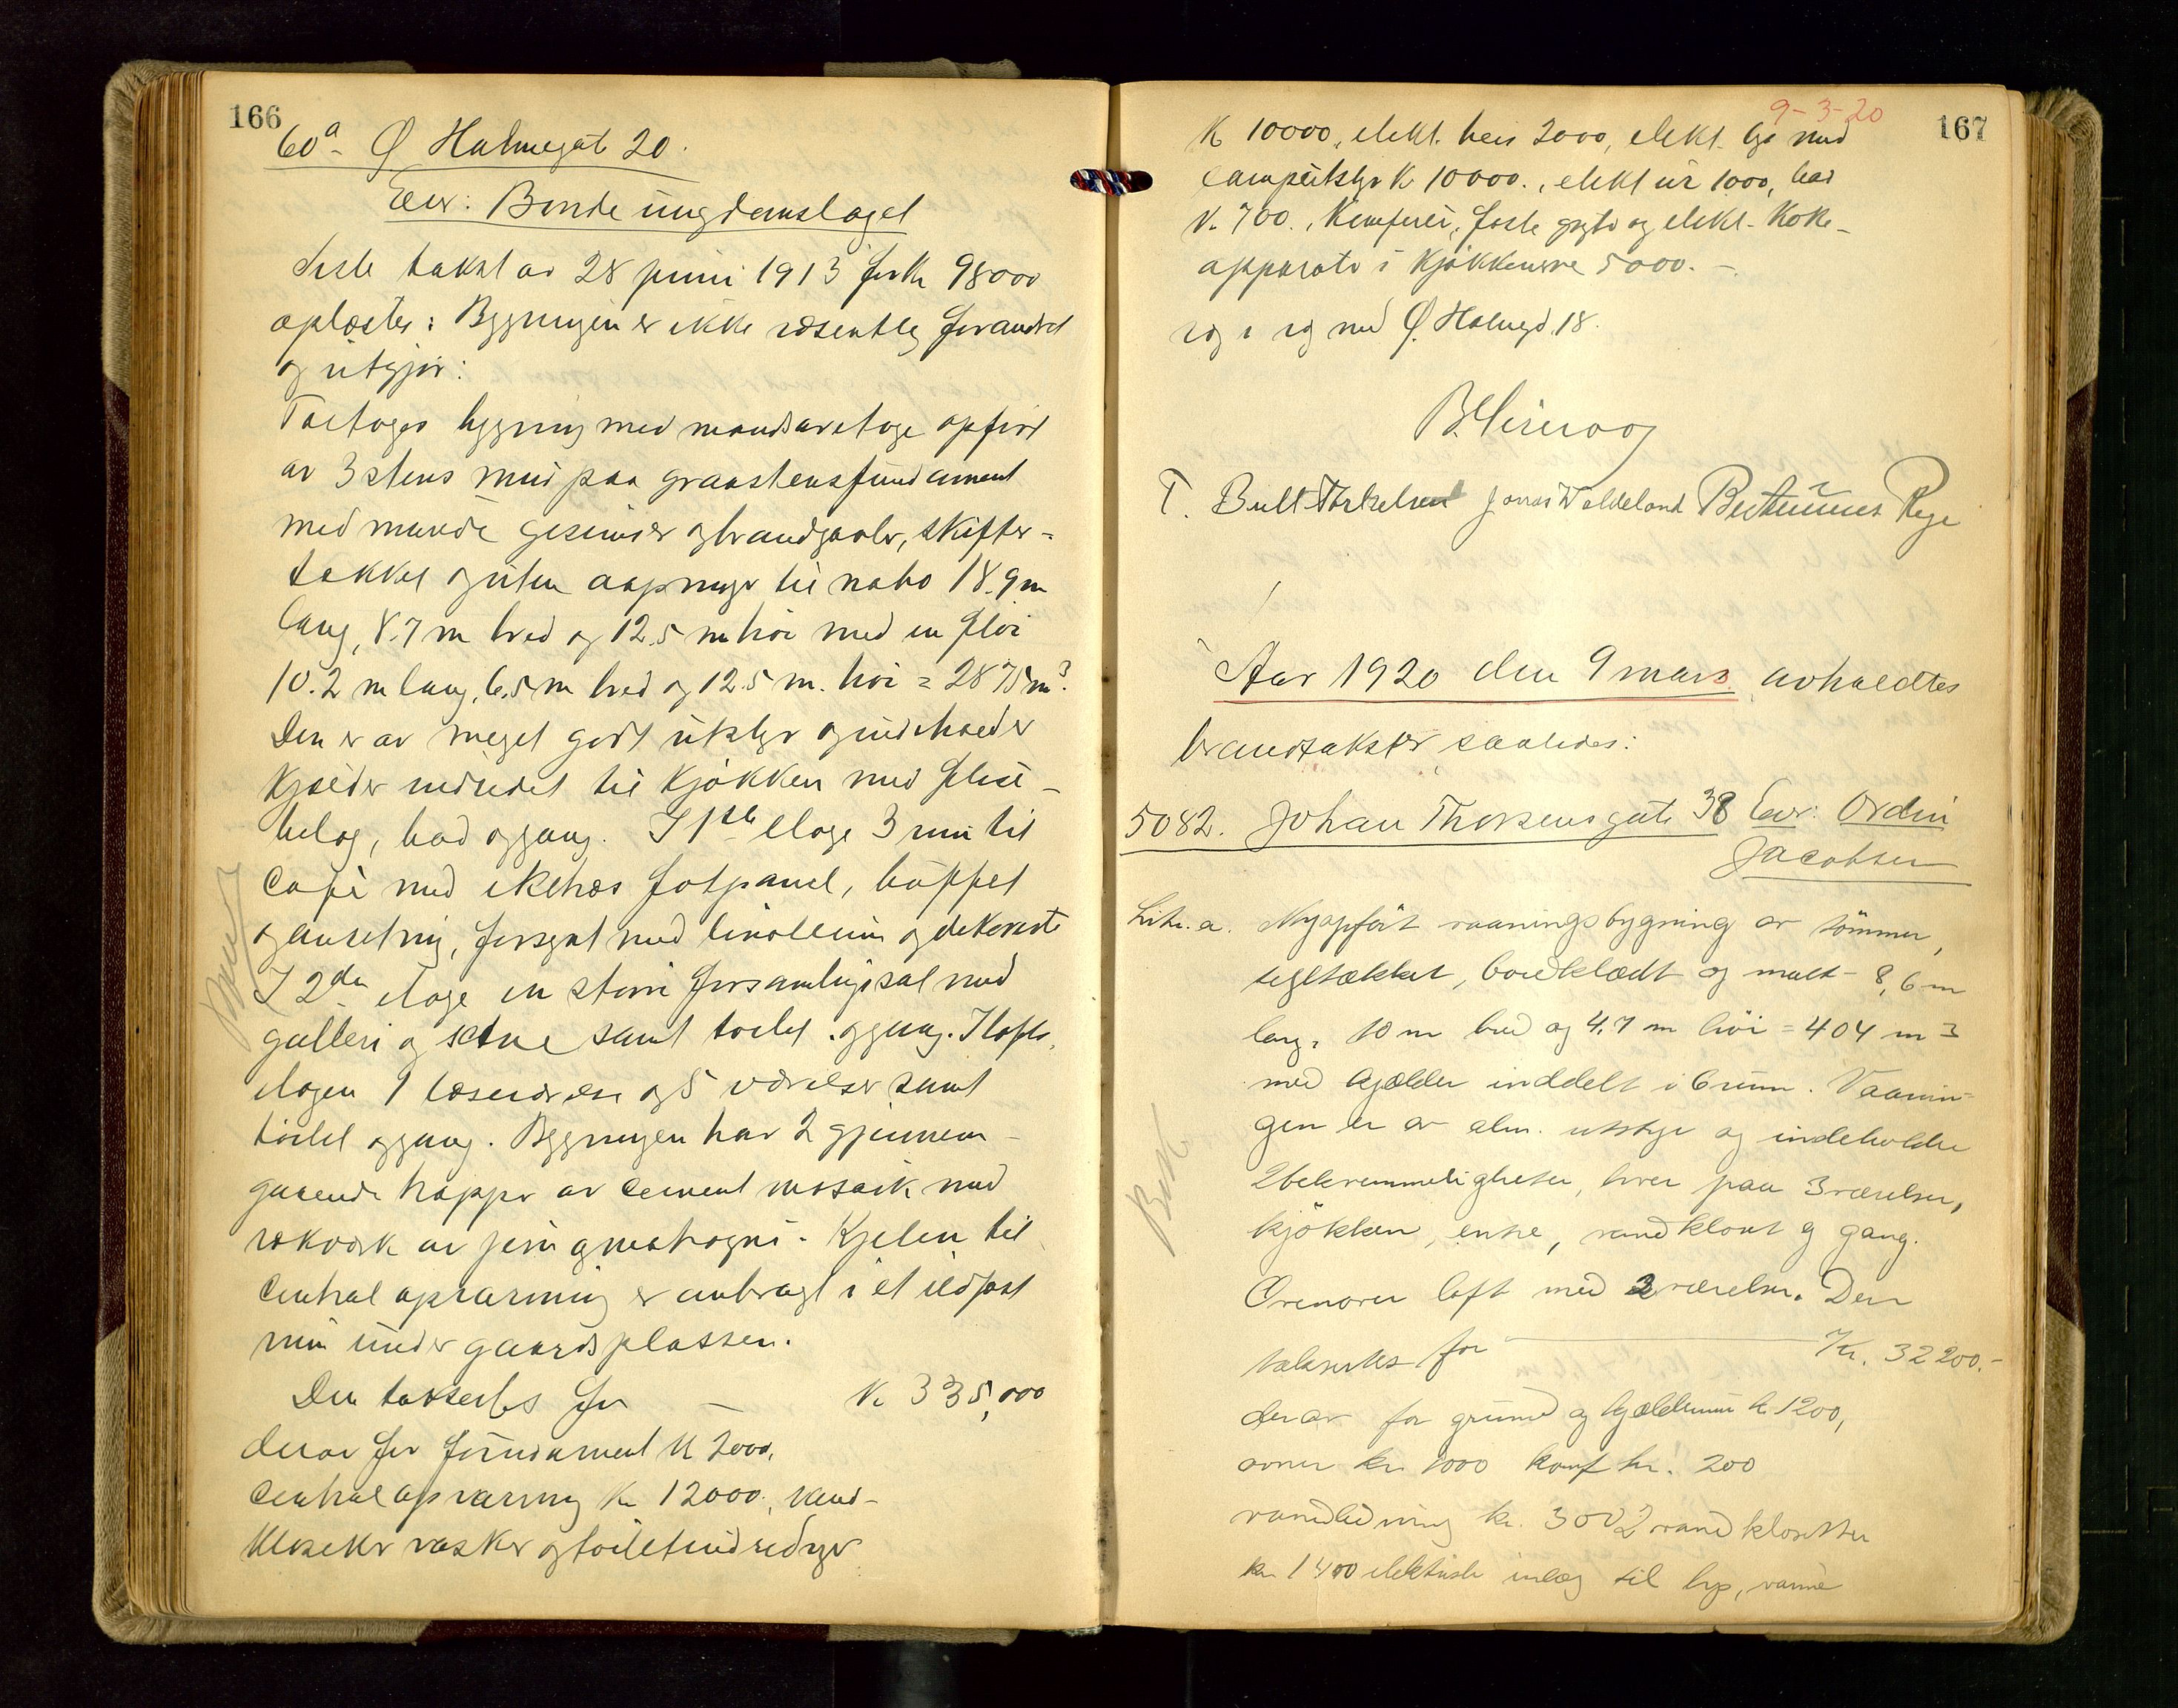 166
60a - Ø Holmegat 20.
Eier: Bondeungdomslaget
Siste takst av 28 juni 1913 for Kr 98000
oplæstes: Bygningen er ikke væsentlig forandret
og utgjør:
Toetages bygning med mansardetage opført
av 3 stens mur paa graastensfundament
med murede gesimser og brandgavler, skifter-
tækket og uten aapninger til nabo 18.9 m
lang, 8.7 m bred og 12.5 m høi med en fløi
10.2 m lang, 6.5 m bred og 12.5 m. høi = 2875 m³.
Den er av meget godt utstyr og indeholder
Kjelder indredet til Kjøkken med flise-
belæg, bad og gang. I 1ste etage 3 rum til
Café med eketræs fotpanel, buffet
og anretning, forsynt med linoleum og dekorerte
I 2den etage en større forsamlingssal med
galleri og scene samt toilet og gang. I lofts-
etagen 1 læseværelse og 5 værelser samt
toilet og gang. Bygningen har 2 gjennem-
gaaende trapper av cement mosaik med
rækværk av jern og mahogni. Kjelen til
Centralopvarming er anbragt i et ildfast
rum under gaardsplassen.
Den takseres for — Kr 335,000
derav for fundament Kr 2000,
Centralopvarming Kr 12000, vand-
klosetter vasker og toiletindredninger
9-3-20
167
Kr 10000, elekt. heis 2000, elekt. lys med
lampeutstyr Kr 10000., elekt ur 1000, bad
Kr. 700., Komfyrer, faste gryter og elekt. Koke-
apparater i Kjøkkenerne 5000.-
væg i væg med Ø. Holmegd. 18.
T. Bull Torkelsen Jonas Voldeland Berthinius Rege
Aar 1920 den 9 mars avholdtes
brandtakster saaledes:
5082. Johan Thorsensgate 38 Eier: Ordin
Jacobsen
Litr. a. Nyopført vaaningsbygning av tømmer,
tegltækket, bordklædt og malt - 8,6 m
lang, 10 m bred og 4,7 m høi = 404 m³
med kjælder inddelt i 6 rum. Vaanin-
gen er av alm. utstyr og indeholder
2 bekvemmeligheter, hver paa 3 værelser,
kjøkken, entre, vandkloset og gang.
Ovenover loft med 3 værelser. Den
takseres for — Kr. 32200.-
derav for grund og kjælderrum kr 1200,
ovner kr. 1000 komf kr. 200
vandledning kr. 300 2 vandklosetter
kr 1400 elektriske inlæg til lys, varme